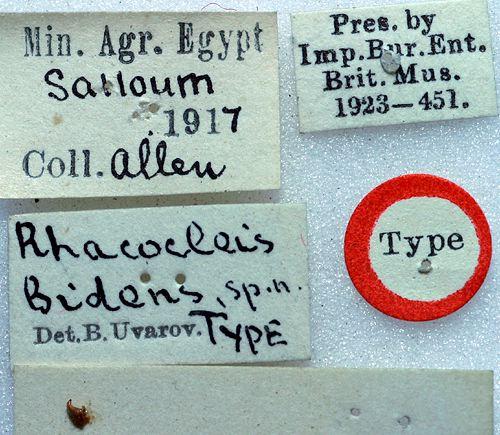 Min. Agr. Egypt
Salloum
1917
Coll. Allen
Pres. by
Imp. Bur. Ent.
Brit. Mus.
1923–451.
Type
Rhacocleis
Bidens, sp.n.
Det. B. Uvarov. TYPE